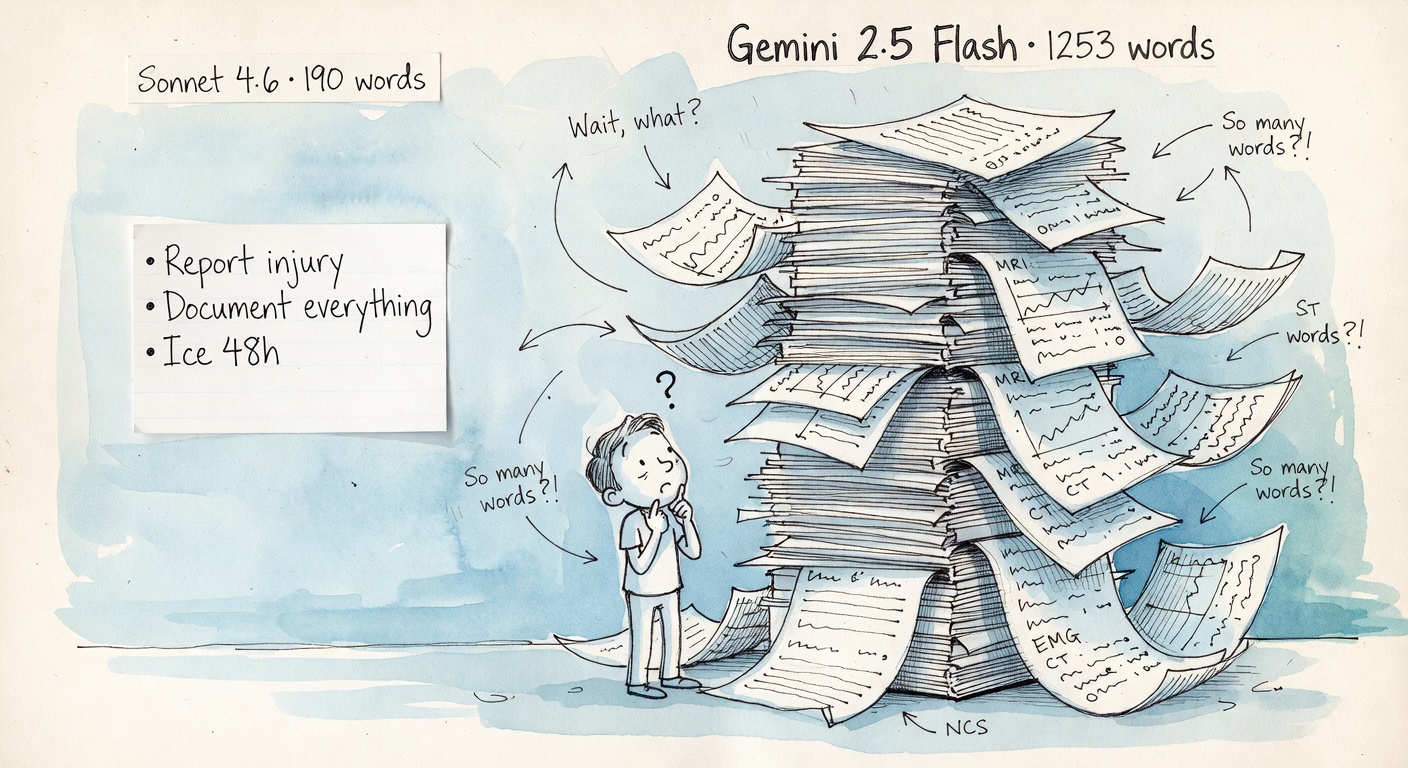 Sonnet 4.6 · 190 words
Gemini 2.5 Flash · 1253 words
Wait, what?
So many
words?!
• Report injury
• Document everything
• Ice 48h
MRI
ST
words?!
?
MRI
CT
So many
words?!
So many
words?!
CT
EMG
CT
NCS